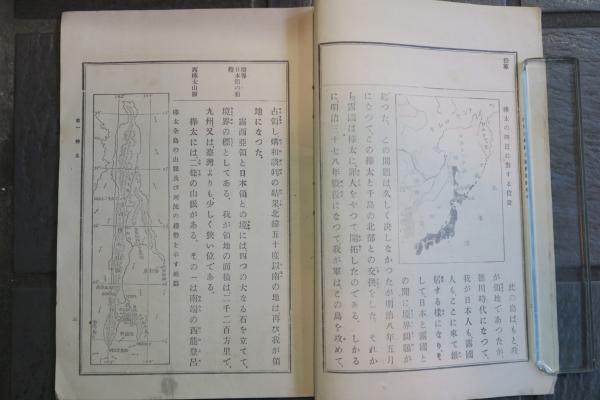 沿革
樺太の四近に對する位置
此の島はもと我
が領地であつたが、
徳川時代になつて、
我が日本人も露國
人もここに來て雑
居する樣になり、そ
して、日本と露國と
の間に境界問題が
起つた。この問題は久しく決しなかつたが明治八年五月
になつてこの樺太と千島の北部との交換をした。それか
ら露國は樺太に罪人をやつて開拓したのである。しかる
に明治三十七八年戰役になつて我が軍はこの島を攻めて、
占領し媾和談判の結果北緯五十度以南の地は再び我が領
地になつた。
境界
日本領の面積
露西亞領と日本領との境には四つの大なる石を立てて、
境界の標としてある。我が領地の面積は二千二百方里で、
九州又は臺灣よりも少しく狹い位である。
南樺太山脈
樺太には二條の山脈がある。その一は南端の西能登呂
樺太全島の山脈及び河流の趨勢を示す地圖